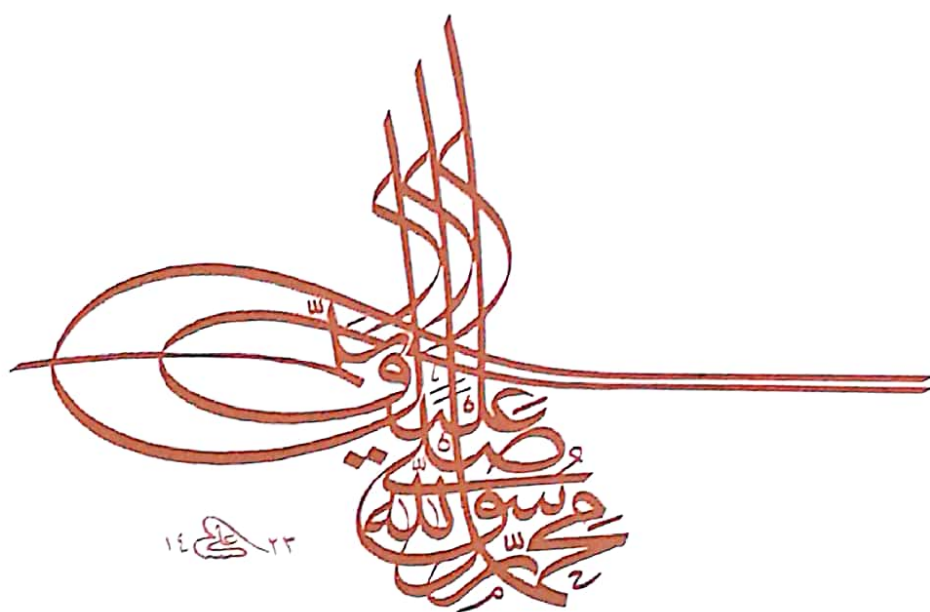 محمد رسول الله صلى عليه وسلم
١٤٢٣